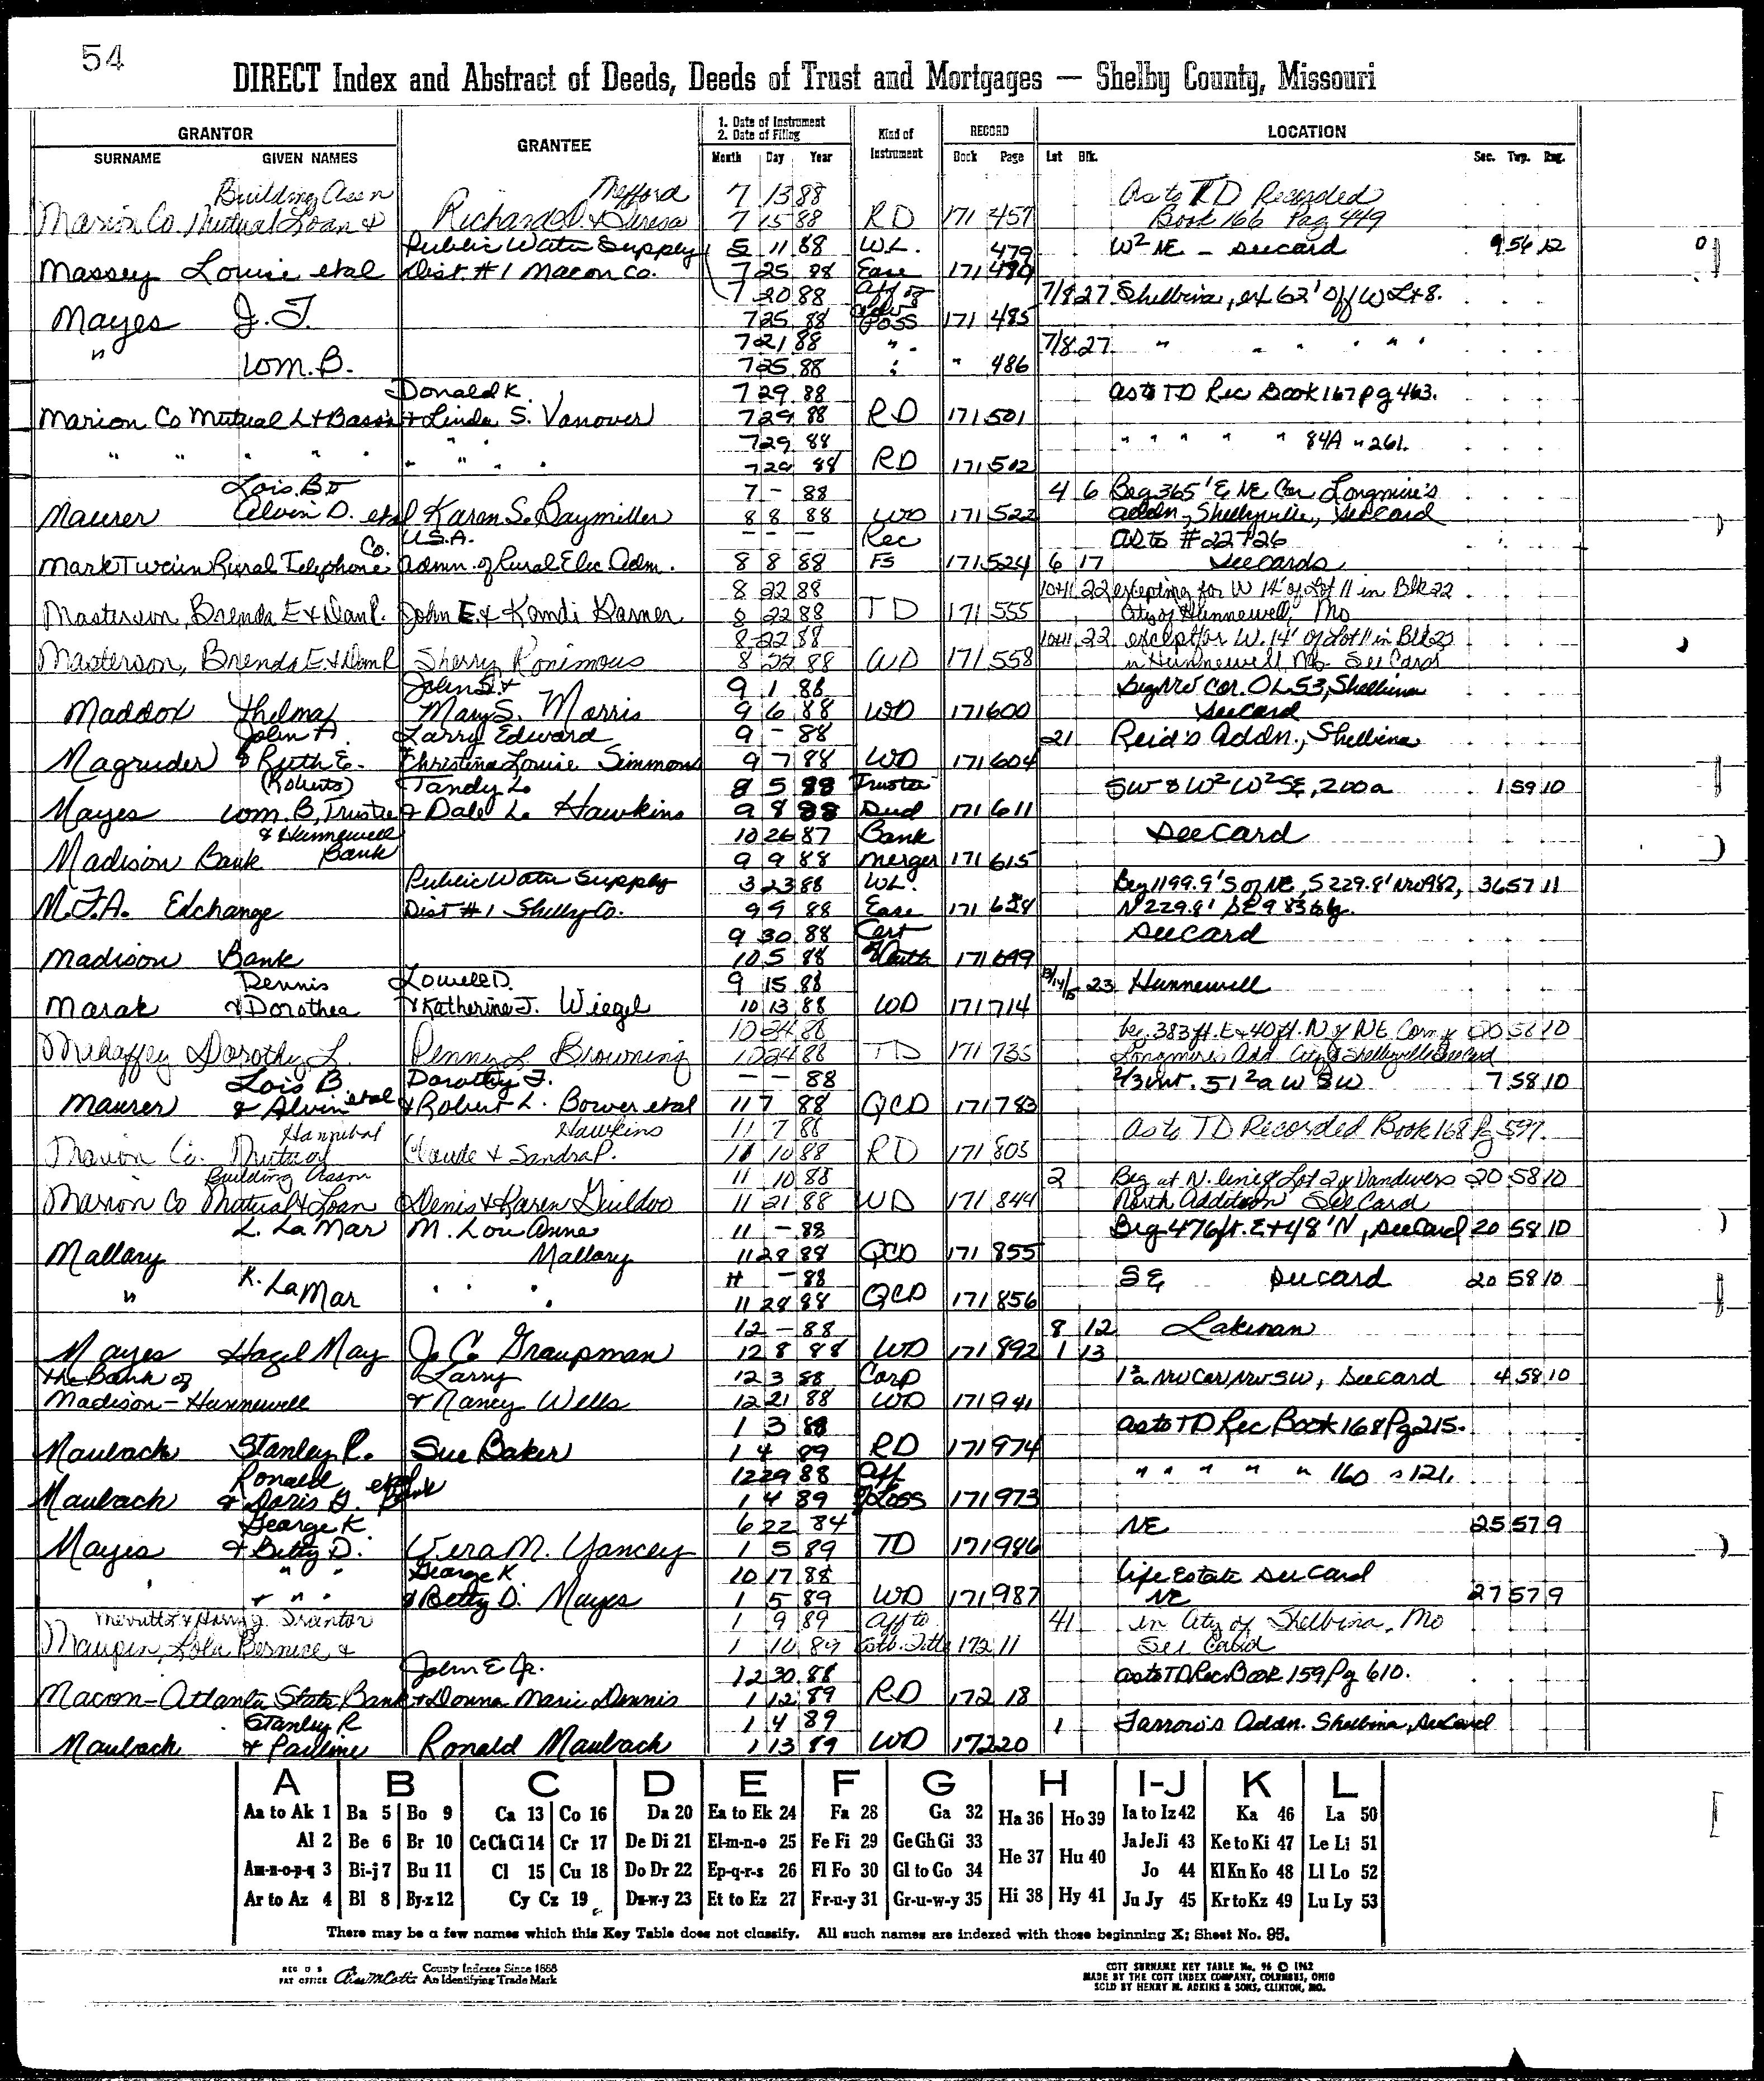 54
DIRECT Index and Abstract of Deeds, Deeds of Trust and Mortgages — Shelby County, Missouri
GRANTOR GRANTEE 1. Date of Instrument 2. Date of Filing Kind of Instrument RECORD LOCATION
SURNAME GIVEN NAMES Month Day Year Book Page Lot Blk. Sec. Twp. Rng.
Building Assn Thefford 7 13 88 As to TD Recorded
Marion Co. Mutual Loan & Richard D. & Teresa 7 15 88 RD 171 457 Book 166 Pag 449
Public Water Supply 5 11 88 W.L. 479 W2 NE - see card 9 56 12
Massey Louise etal Dist. #1 Macon Co. 7 25 88 Ease 171 480
7 20 88 Aff of 7/8 27 Shelbina, ex 62' Off W Lt 8.
Mayes J. T. 7 25 88 adv Poss 171 485
7 21 88 " . 7/8 27 " " " " " "
" Wm. B. 7 25 88 " 486
Donald K. 7 29 88 as to TD Rec Book 167 pg 463.
Marion Co Mutual L & B ass'n & Linda S. Vanover 7 29 88 RD 171 501
7 29 88 " " " " " 84A " 261.
" " " " " " " " 7 29 88 RD 171 502
Lois B & 7 - 88 4 6 Beg 365' E NE Cor Longmire's
Maurer Alvin D. etal Karen S. Baymiller 8 8 88 WD 171 522 addn, Shelbyville, see card
Co. U.S.A. - - - Rec as to # 22726
Mark Twain Rural Telephone Admn. of Rural Elec Adm. 8 8 88 FS 171 524 6 17 see cards
8 22 88 10&11 22 excepting for W 14' of Lot 11 in Blk 22
Masterson, Brenda E & Dan P. John E. & Kandi Karner 8 22 88 TD 171 555 City of Hunnewell, Mo
8 22 88 10&11 22 except for W. 14' of Lot 11 in Blk 22
Masterson, Brenda E. & Dan P Sherry Ronimous 8 22 88 WD 171 558 in Hunnewell, Mo. See Card
John S. & 9 1 88 Beg NW Cor. OL 53, Shelbina
Maddox Thelma Mary S. Morris 9 6 88 WD 171 600 see card
John A. Larry Edward 9 - 88 21 Reid's Addn., Shelbina
Magruder & Ruth E. Christina Louise Simmons 9 7 88 WD 171 604
(Roberts) Tandy L. 8 5 88 Trustee SW & W2 W2 SE, 200a 1 59 10
Mayes Wm. B, Trustee & Dale L. Hawkins 9 8 88 Deed 171 611
& Hunnewell 10 26 87 Bank see card
Madison Bank Bank 9 9 88 merger 171 615
Public Water Supply 3 23 88 WL. Beg 1199.9' S of NE, S 229.8' NW 982, 36 57 11
M.F.A. Exchange Dist #1 Shelby Co. 9 9 88 Ease 171 628 N 229.8' SE 983 6/g.
9 30 88 Cert see card
Madison Bank 10 5 88 171 699
Dennis Lowell D. 9 15 88 13/14/15 23 Hunnewell
Marak & Dorothea & Katherine J. Wiegel 10 13 88 WD 171 714
10 24 88 beg. 383 ft. E & 40 ft. N of NE Corn of 20 58 10
Mehaffey Dorothy L. Penny L. Browning 10 24 88 TD 171 735 Longmires Add. City of Shelbyville See Card
Lois B. Dorothy F. - - 88 2/3 int. 51 2a W SW 7 58 10
Maurer & Alvin etal & Robert L. Bower etal 11 7 88 QCD 171 783
Hannibal Hawkins 11 7 88 As to TD Recorded Book 168 Pg 597.
Marion Co. Mutual Claude & Sandra P. 11 10 88 RD 171 805
Building Assn 11 10 88 2 Beg at N. line of Lot 2 of Vandivers 20 58 10
Marion Co Mutual & Loan Denis & Karen Guildoo 11 21 88 WD 171 844 North Addition See Card
L. La Mar M. Lou Anne 11 - 88 Beg 476 ft. E & 48' N, see card 20 58 10
Mallary Mallary 11 28 88 QCD 171 855
K. La Mar 11 - 88 SE see card 20 58 10
" " " " 11 28 88 QCD 171 856
12 - 88 8 12 Lakenan
Mayes Hazel May J. C. Graupman 12 8 88 WD 171 892 1 13
the Bank of Larry 12 3 88 Corp 1 2a NW Cor NW SW, see card 4 58 10
Madison - Hunnewell & Nancy Wells 12 21 88 WD 171 941
1 3 88 as to TD Rec Book 168 Pg 215.
Maubach Stanley R. Sue Baker 1 4 89 RD 171 974
Ronald etal 12 29 88 Aff " " " " " 160 " 121.
Maubach & Doris G. Bank 1 4 89 of Loss 171 973
George K. 6 22 84 NE 25 57 9
Mayes & Betty D. Vera M. Yancey 1 5 89 TD 171 986
" " " George K 10 17 88 life Estate see card
" " " & Betty D. Mayes 1 5 89 WD 171 987 NE 27 57 9
Merritt & Harry J. Trentor 1 9 89 Aff to 41 in City of Shelbina, Mo
Maupin, Lola Bernice & 1 10 89 Estb. Title 172 11 See Card
John E Jr. 12 30 88 as to TD Rec Book 159 Pg 610.
Macon-Atlanta State Bank & Donna Marie Dennis 1 12 89 RD 172 18
Stanley R 1 4 89 1 Farrow's Addn. Shelbina, see card
Maubach & Pauline Ronald Maubach 1 13 89 WD 172 20
A B C D E F G H I-J K L
Aa to Ak 1 Ba 5 Bo 9 Ca 13 Co 16 Da 20 Ea to Ek 24 Fa 28 Ga 32 Ha 36 Ho 39 Ia to Iz 42 Ka 46 La 50
Al 2 Be 6 Br 10 Ce Ch Ci 14 Cr 17 De Di 21 El-m-n-o 25 Fe Fi 29 Ge Gh Gi 33 He 37 Hu 40 Ja Je Ji 43 Ke to Ki 47 Le Li 51
Am-n-o-p-q 3 Bi-j 7 Bu 11 Cl 15 Cu 18 Do Dr 22 Ep-q-r-s 26 Fl Fo 30 Gl to Go 34 Jo 44 Kl Kn Ko 48 Ll Lo 52
Ar to Az 4 Bl 8 By-z 12 Cy Cz 19 Du-w-y 23 Et to Ez 27 Fr-u-y 31 Gr-u-w-y 35 Hi 38 Hy 41 Ju Jy 45 Kr to Kz 49 Lu Ly 53
There may be a few names which this Key Table does not classify. All such names are indexed with those beginning X; Sheet No. 95.
REG U S PAT OFFICE County Indexes Since 1888 An Identifying Trade Mark
COTT SURNAME KEY TABLE No. 96 © 1962
MADE BY THE COTT INDEX COMPANY, COLUMBUS, OHIO
SOLD BY HENRY M. ADKINS & SONS, CLINTON, MO.